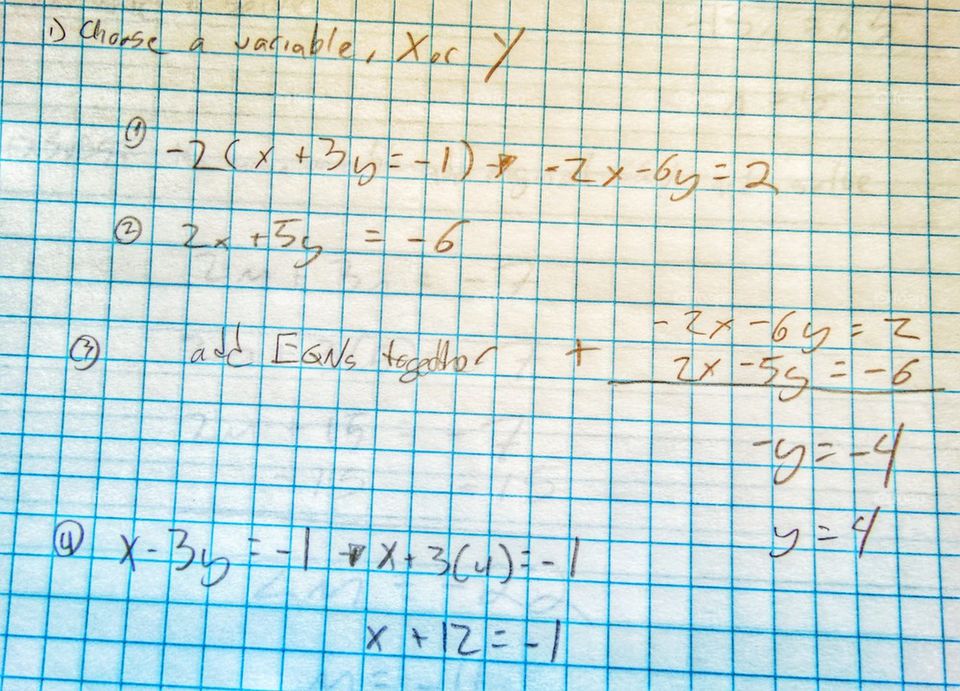 1) Choose a variable, X or Y
① -2(x+3y=-1) → -2x-6y=2
② 2x+5y = -6
③ add EQNs together + -2x-6y=2
2x-5y=-6
-y=-4
y=4
④ x-3y=-1 → x+3(4)=-1
x+12=-1